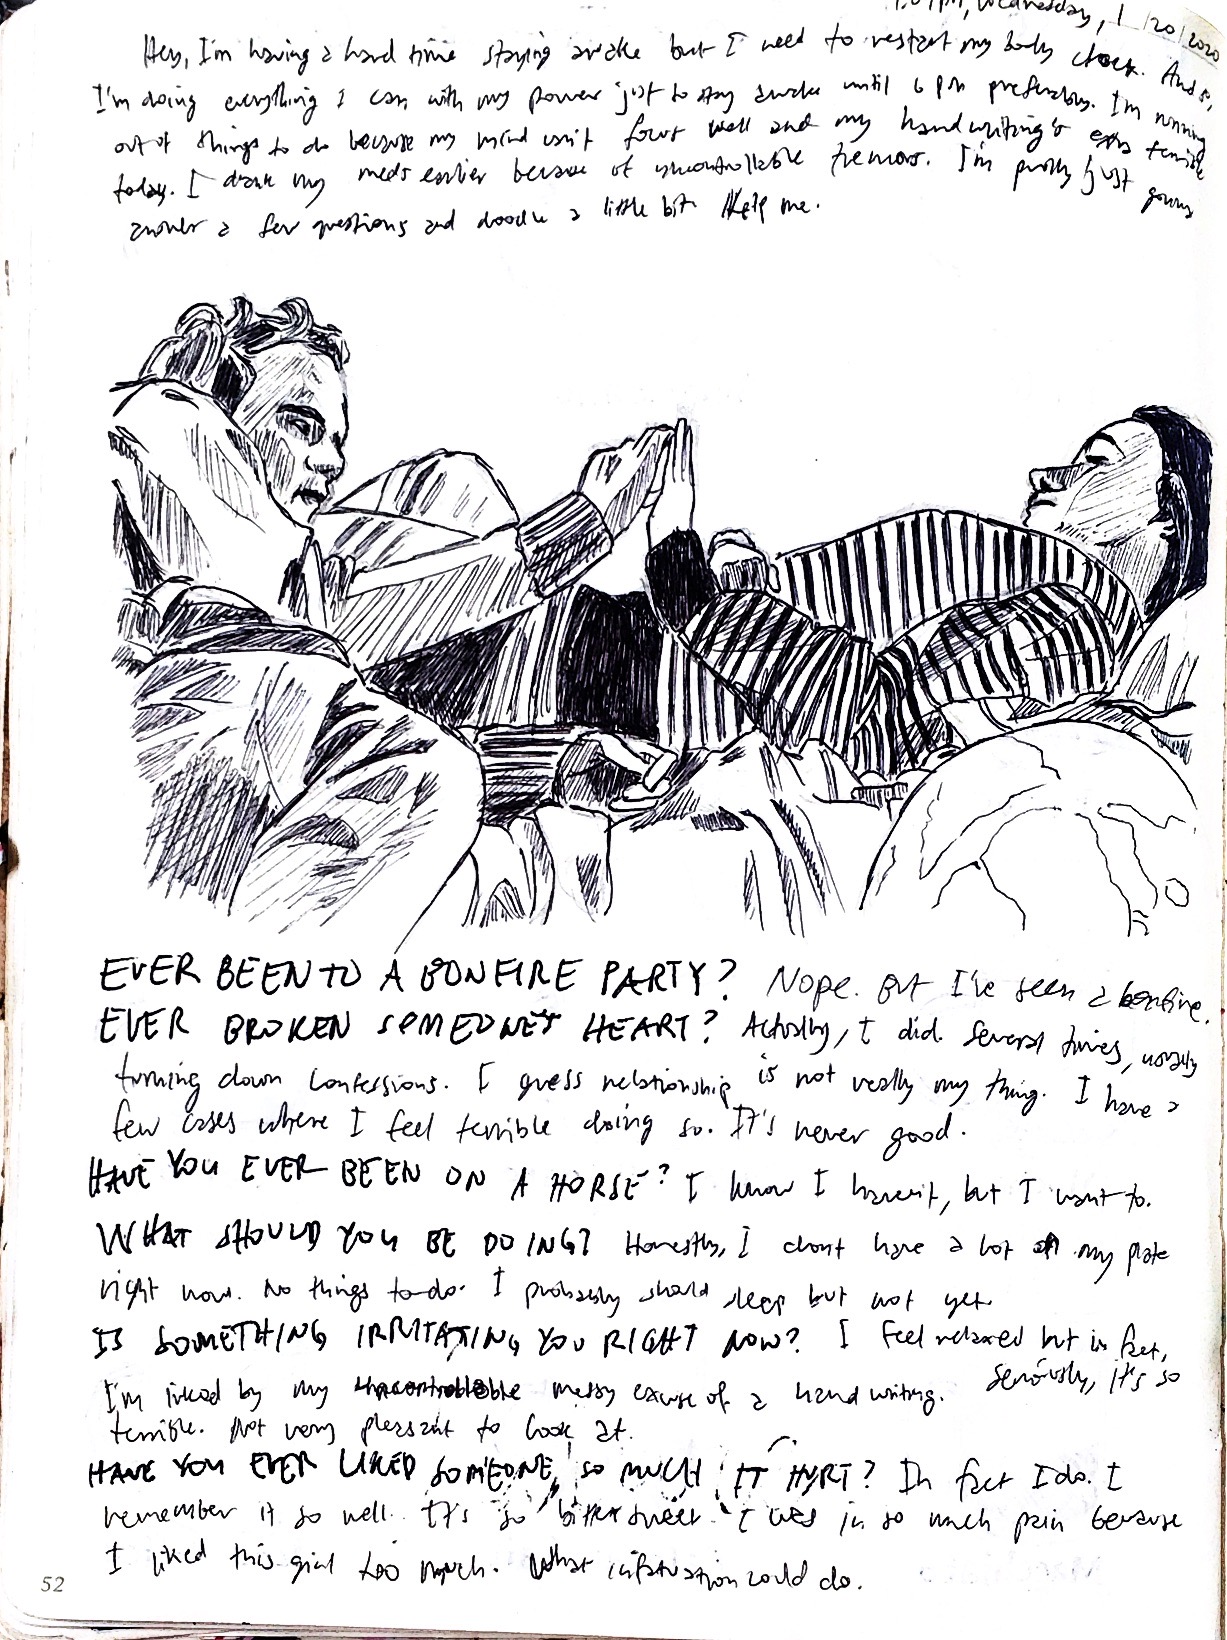 PM, Wednesday, 1/20/2020
Hey, I'm having a hard time staying awake but I need to restart my body clock. And so,
I'm doing everything I can with my power just to stay awake until 6 pm preferably. I'm running
out of things to do because my mind can't focus well and my handwriting's extra terrible
today. I drank my meds earlier because of uncontrollable tremors. I'm probably just gonna
answer a few questions and doodle a little bit. Help me.
EVER BEEN TO A BONFIRE PARTY? Nope. But I've seen a bonfire.
EVER BROKEN SOMEONE'S HEART? Actually, I did. Several times, usually
turning down confessions. I guess relationship is not really my thing. I have a
few cases where I feel terrible doing so. It's never good.
HAVE YOU EVER BEEN ON A HORSE? I know I haven't, but I want to.
WHAT SHOULD YOU BE DOING? Honestly, I don't have a lot on my plate
right now. No things to-do. I probably should sleep but not yet.
IS SOMETHING IRRITATING YOU RIGHT NOW? I feel relaxed but in fact,
I'm irked by my uncontrollable messy excuse of a handwriting. Seriously, it's so
terrible. Not very pleasant to look at.
HAVE YOU EVER LIKED SOMEONE SO MUCH IT HURT? In fact I do. I
remember it so well. It's so bittersweet. I was in so much pain because
I liked this girl too much. What infatuation could do.
52